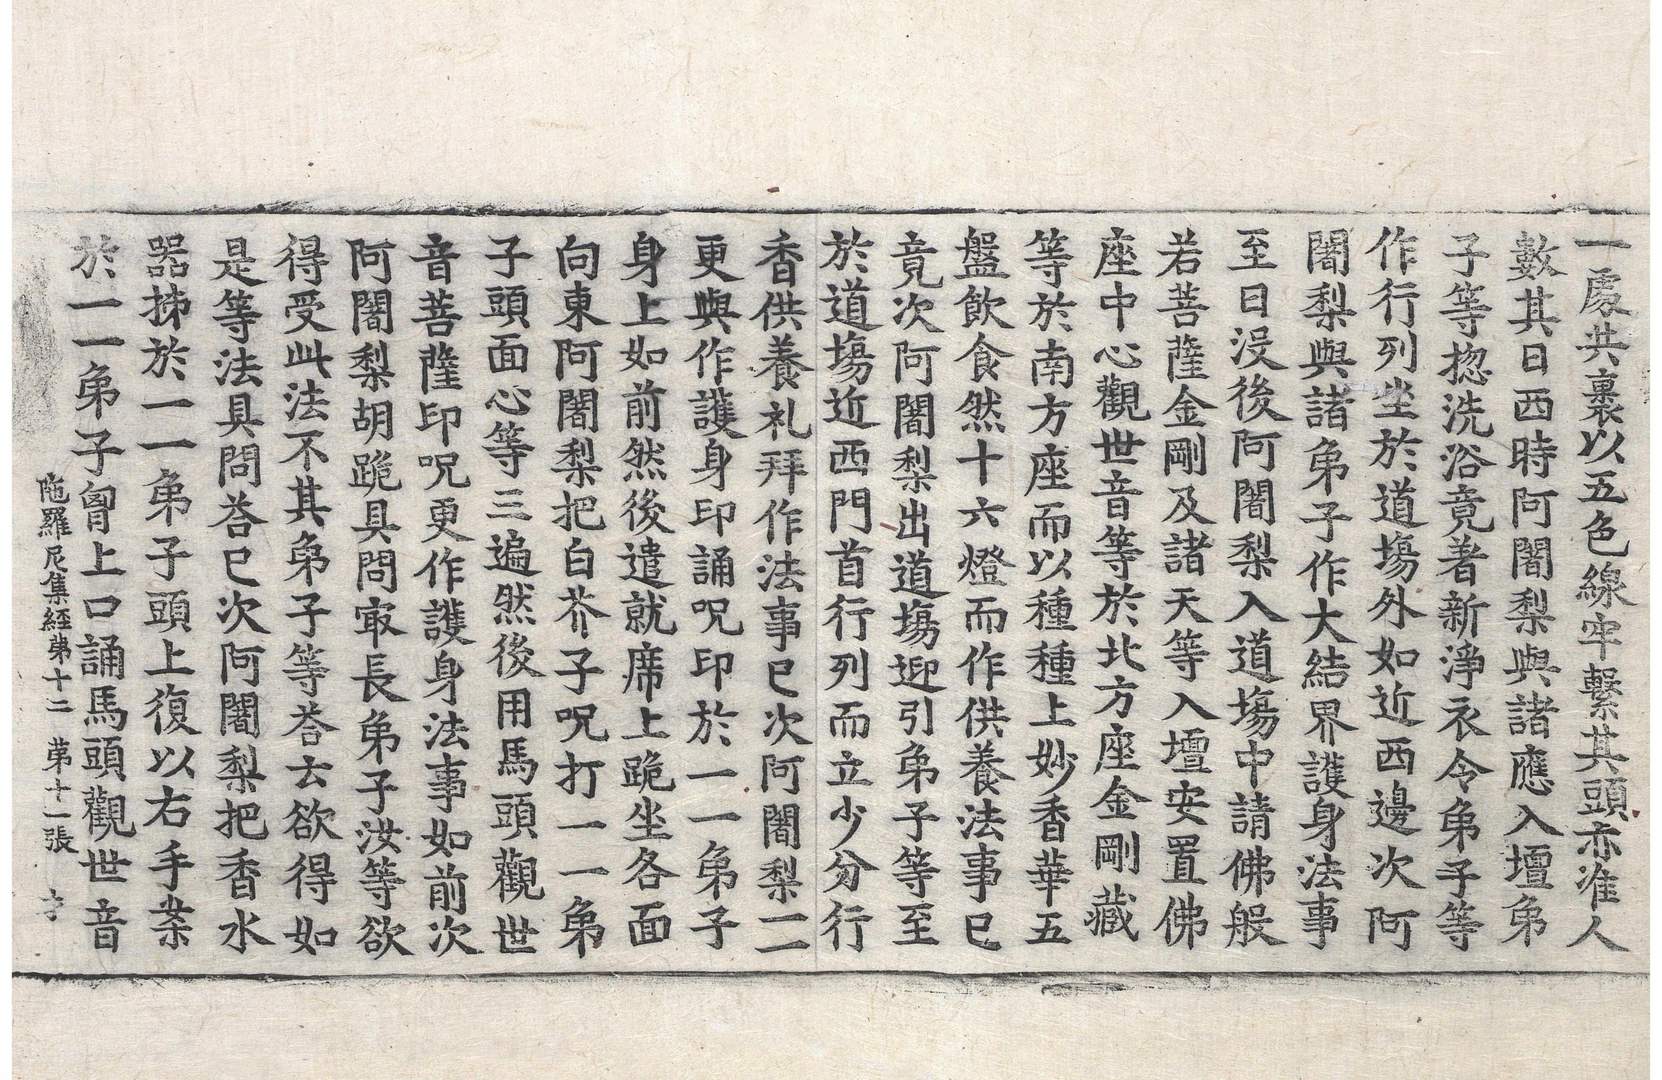 一處共裹以五色線牢繫其頭亦准人
數其日西時阿闍梨與諸應入壇弟
子等揔洗浴竟著新淨衣令弟子等
作行列坐於道場外如近西邊次阿
闍梨與諸弟子作大結界護身法事
至日沒後阿闍梨入道場中請佛般
若菩薩金剛及諸天等入壇安置佛
座中心觀世音等於北方座金剛藏
等於南方座而以種種上妙香華五
盤飲食然十六燈而作供養法事已
竟次阿闍梨出道場迎引弟子等至
於道場近西門首行列而立少分行
香供養礼拜作法事已次阿闍梨一一
更與作護身印誦呪印於一一弟子
身上如前然後遣就席上跪坐各面
向東阿闍梨把白芥子呪打一一弟
子頭面心等三遍然後用馬頭觀世
音菩薩印呪更作護身法事如前次
阿闍梨胡跪具問㝡長弟子汝等欲
得受此法不其弟子等荅云欲得如
是等法具問荅已次阿闍梨把香水
器㧊於一一弟子頭上復以右手桒
於一一弟子胷上口誦馬頭觀世音
陁羅尼集經苐十二 苐十一張